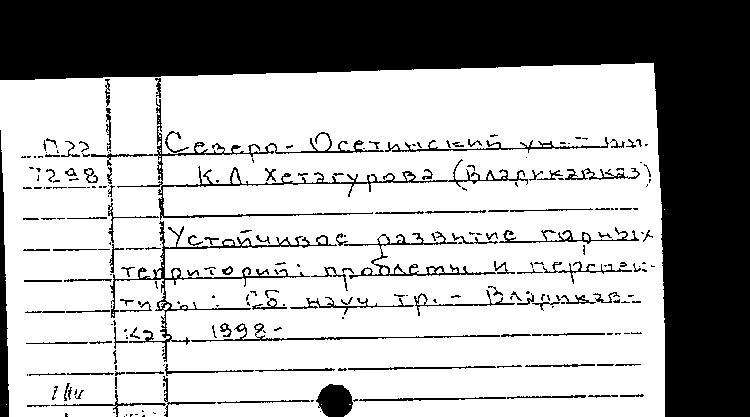 П22 Северо-Осетинский ун-т им.
7298 К.Л. Хетагурова (Владикавказ)
Устойчивое развитие горных
территорий: проблемы и перспек-
тивы: Сб. науч. тр. - Владикав-
каз, 1998-